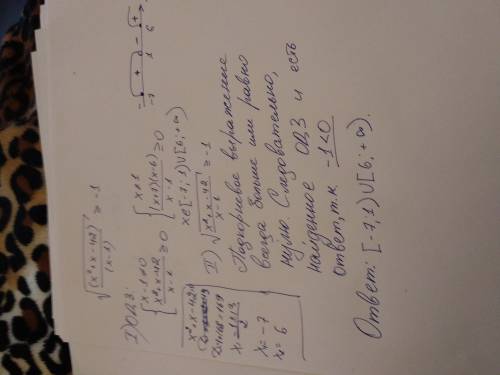 √((x²+x-42)/(x-1)) ≥ -1
I) ОДЗ:
{ x-1≠0
{ (x²+x-42)/(x-1) ≥ 0
{ x≠1
{ (x+7)(x-6)/(x-1) ≥ 0
x∈[-7;1)∪[6;+∞)
- + - +
-7 1 6
x²+x-42=0
D=1+168=169
x₁=
x₁=-7
x₂=6
II) √((x²+x-42)/(x-1)) ≥ -1
Подкорневое выражение
всегда больше или равно
нулю. Следовательно,
найденное ОДЗ и есть
ответ, т.к. -1<0
Ответ: [-7;1)∪[6;+∞).